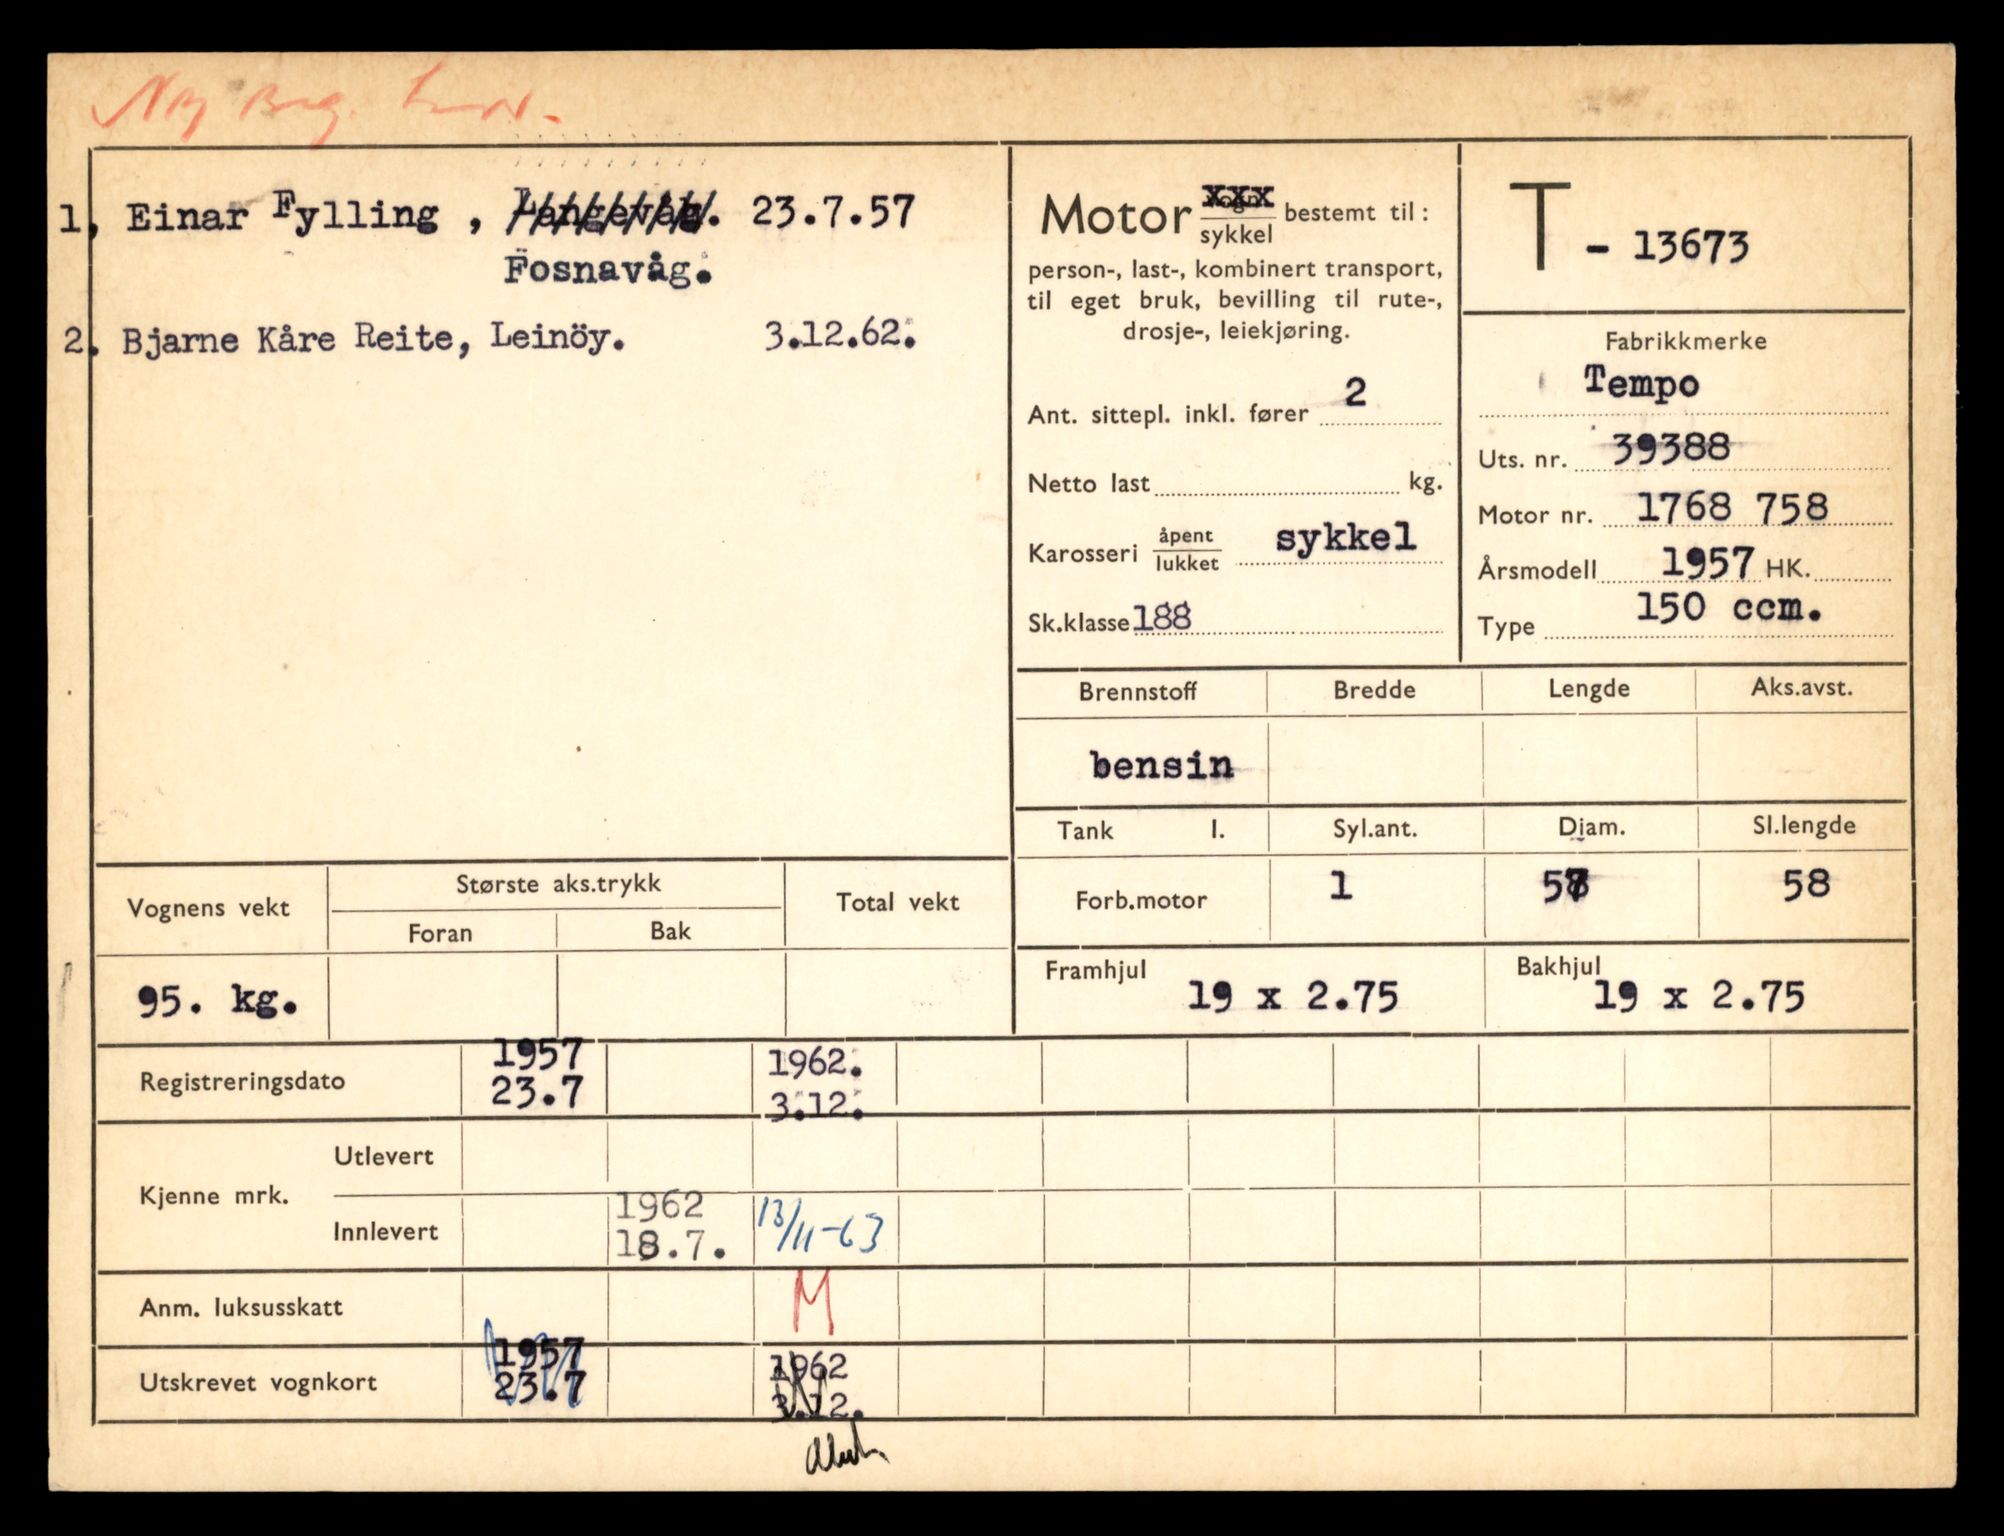 Ny
1, Einar Fylling , Langevåg. 23.7.57
Fosnavåg.
2. Bjarne Kåre Reite, Leinöy. 3.12.62.
Motor vogn xxx sykkel bestemt til:
person-, last-, kombinert transport,
til eget bruk, bevilling til rute-,
drosje-, leiekjøring.
Ant. sittepl. inkl. fører 2
Netto last kg.
Karosseri åpent lukket sykkel
Sk.klasse 188
T - 13673
Fabrikkmerke
Tempo
Uts. nr. 39388
Motor nr. 1768 758
Årsmodell 1957 HK.
Type 150 ccm.
Brennstoff Bredde Lengde Aks.avst.
bensin
Tank l. Syl.ant. Diam. Sl.lengde
Forb.motor 1 57 58
Framhjul 19 x 2.75 Bakhjul 19 x 2.75
Vognens vekt Største aks.trykk Total vekt
Foran Bak
95. kg.
Registreringsdato 1957 1962.
23.7 3.12.
Kjenne mrk. Utlevert
Innlevert 1962 13/11-63
18.7.
Anm. luksusskatt M
Utskrevet vognkort 1957 1962
23.7 3.12.